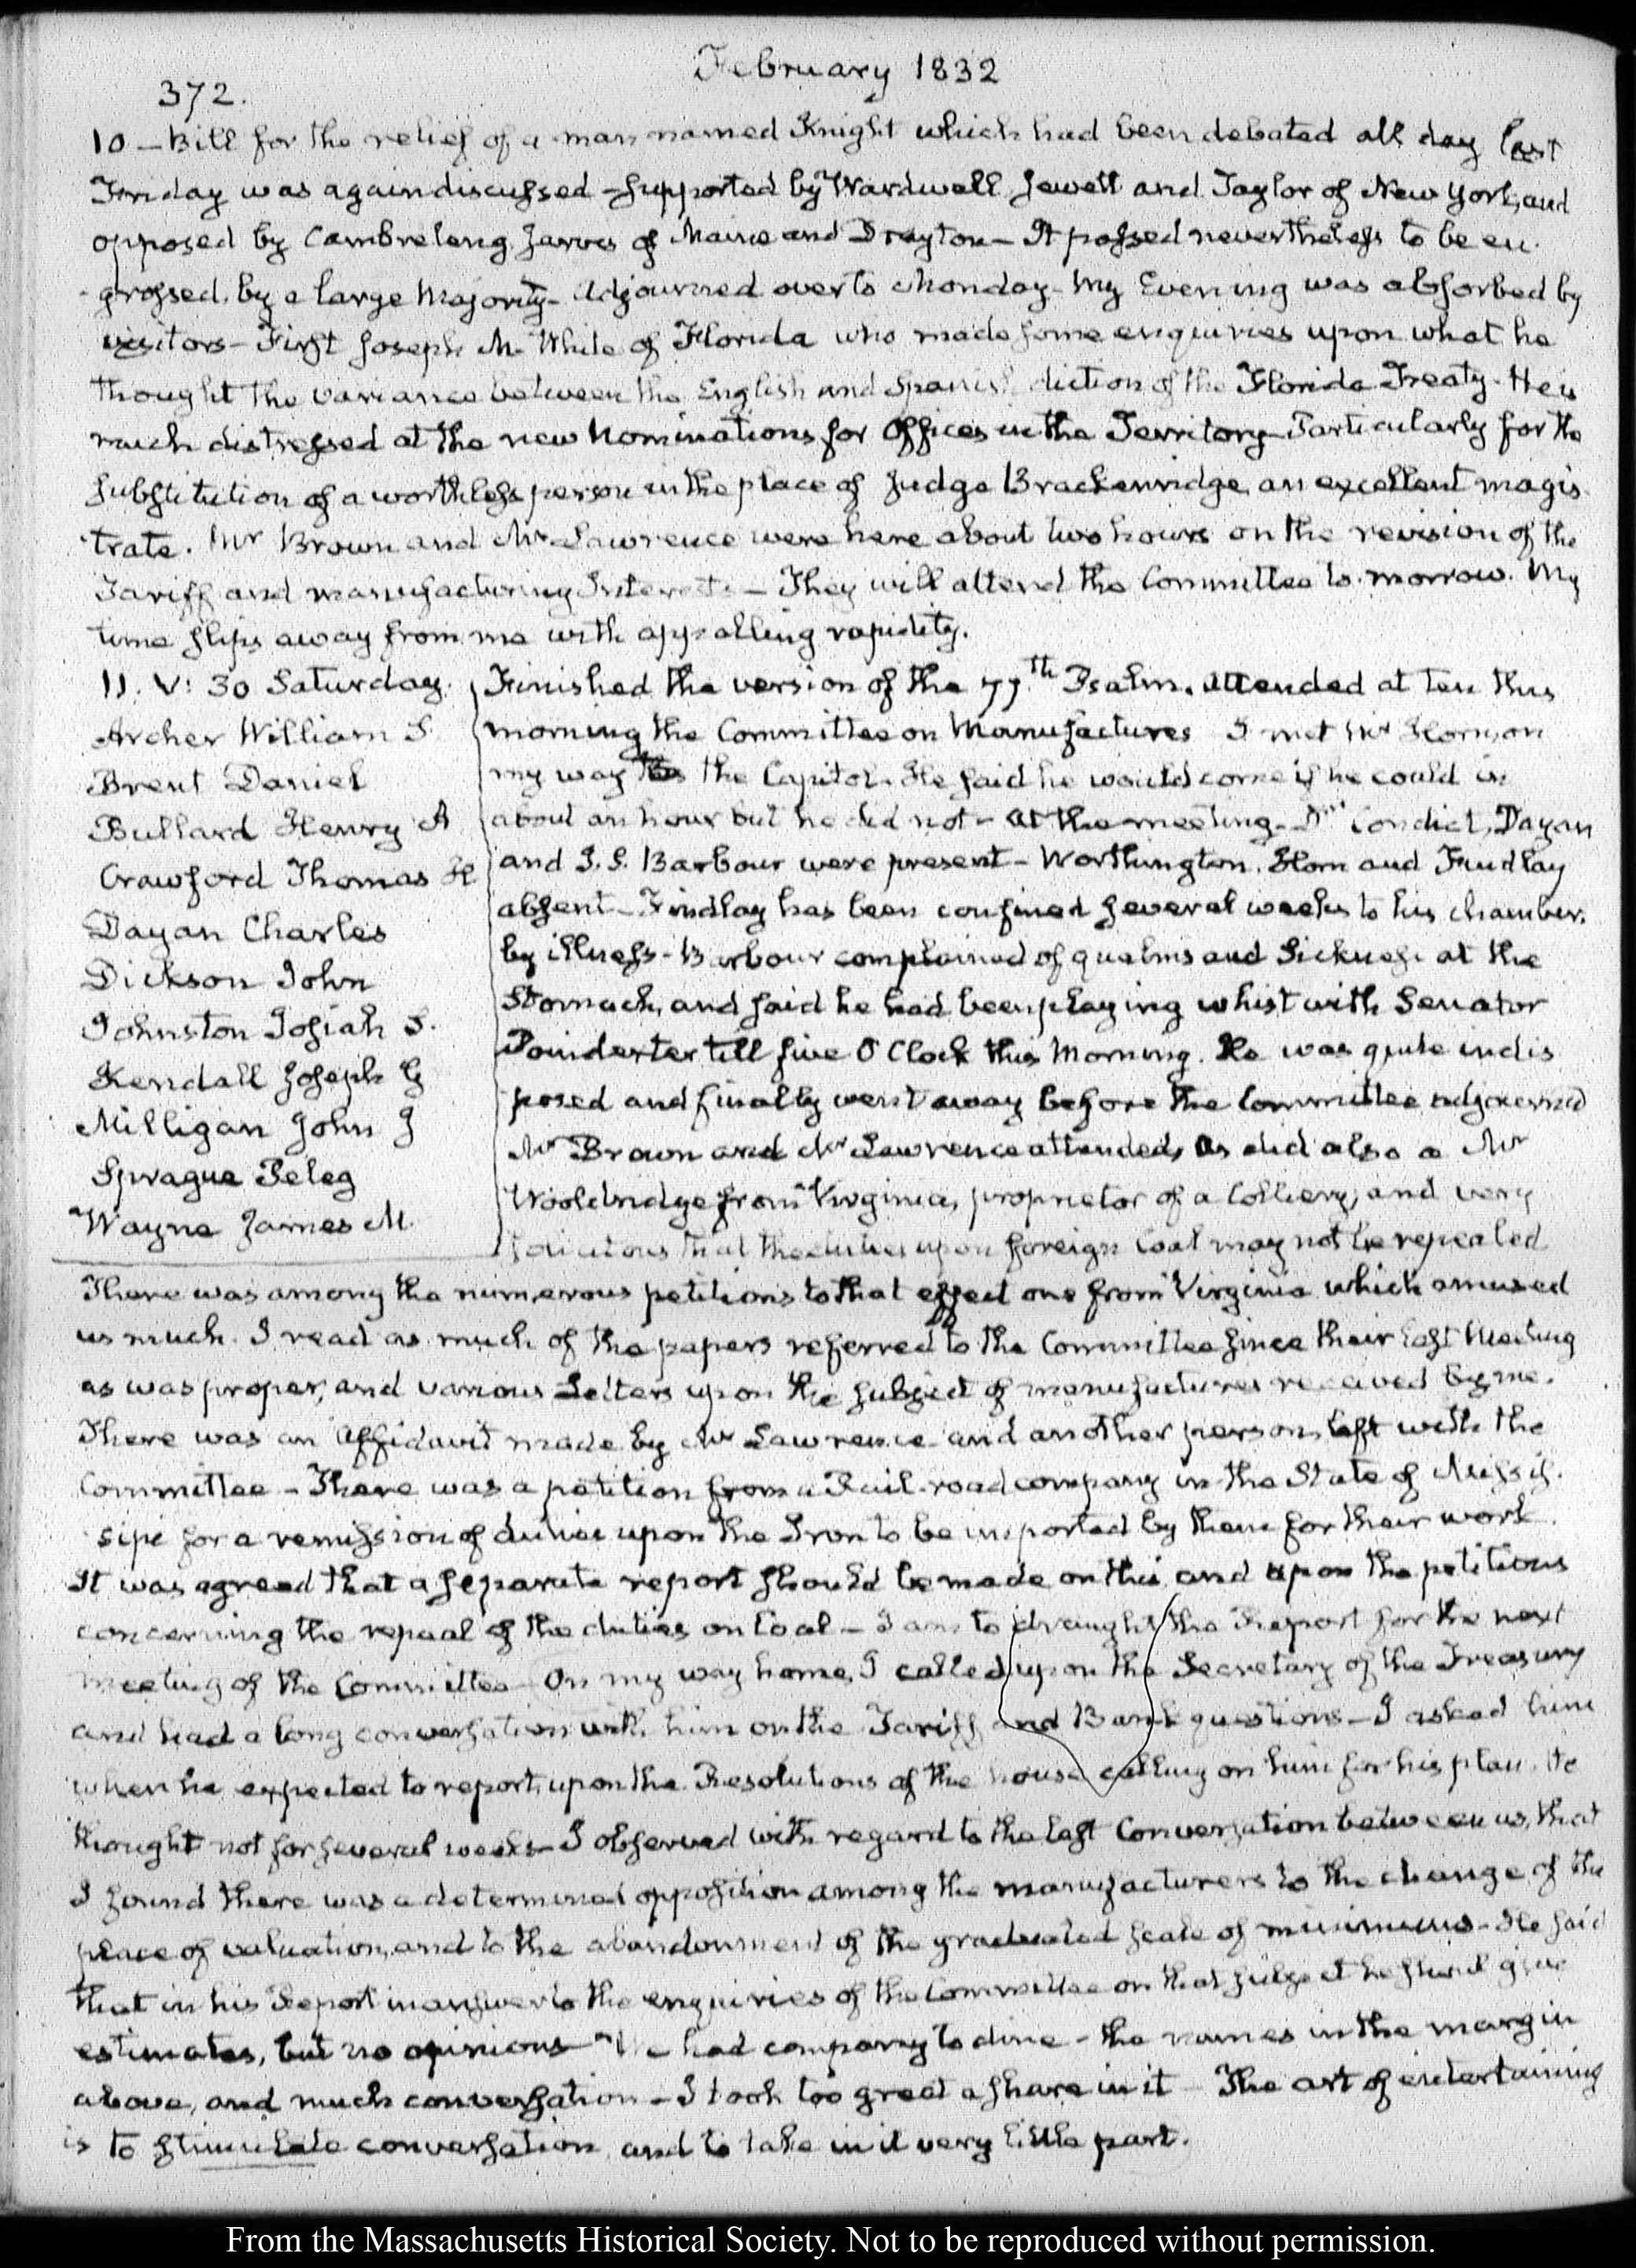 February 1832
372.
10 — Bill for the relief of a man named Knight which had been debated all day last
Friday was again discussed – supported by Wardwell Jewett and Taylor of New York, and
opposed by Cambreleng Jarvis of Maine and Drayton — It passed nevertheless to be en-
grossed, by a large Majority – Adjourned over to Monday – My Evening was absorbed by
visitors – First Joseph M. White of Florida who made some enquiries upon what he
thought the variance between the English and Spanish diction of the Florida Treaty – He is
much distressed at the new Nominations for Offices in the Territory – Particularly for the
substitution of a worthless person in the place of Judge Brackenridge, an excellent magis-
trate. Mr Brown and Mr Lawrence were here about two hours on the revision of the
Tariff and manufacturing Interests — They will attend the Committee to-morrow. My
time slips away from me with appalling rapidity.
11. V: 30 Saturday.
Archer William S.
Brent Daniel
Bullard Henry A
Crawford Thomas H
Dayan Charles
Dickson John
Johnston Josiah S.
Kendall Joseph G
Milligan John J
Sprague Peleg
Wayne James M.
Finished the version of the 77th Psalm. Attended at ten this
morning the Committee on Manufactures I met Mr Horn, on
my way to the Capitol. He said he would come if he could in
about an hour but he did not – At the meeting – Dr Condict, Dayan
and J. S. Barbour were present – Worthington, Horn and Findlay
absent – Findlay has been confined several weeks to his chamber,
by illness – Barbour complained of qualms and Sickness at the
Stomach, and said he had been playing whist with Senator
Poindexter till five O'Clock this Morning. He was quite indis
posed and finally went away before the Committee adjourned
Mr Brown and Mr Lawrence attended, as did also a Mr
Wooldridge from Virginia, proprietor of a Colliery, and very
solicitous that the duties upon foreign Coal may not be repealed
There was among the numerous petitions to that effect one from Virginia which amused
us much. I read as much of the papers referred to the Committee since their last Meeting
as was proper, and various Letters upon the subject of manufactures received by me.
There was an Affidavit made by Mr Lawrence and another person, left with the
Committee – There was a petition from a Rail-road company in the State of Missis-
sipi for a remission of duties upon the Iron to be imported by them for their work.
It was agreed that a separate report should be made on this, and upon the petitions
concerning the repeal of the duties on Coal – I am to draught the Report for the next
meeting of the Committee – On my way home, I called upon the Secretary of the Treasury
and had a long conversation with him on the Tariff and Bank questions – I asked him
when he expected to report, upon the Resolutions of the house calling on him for his plan. He
thought not for several weeks – I observed with regard to the last Conversation between us, that
I found there was a determined opposition among the manufacturers to the change of the
place of valuation, and to the abandonment of the graduated scale of minimums – He said
that in his Report in answer to the enquiries of the Committee on that subject he should give
estimates, but no opinions – We had company to dine – the names in the margin
above, and much conversation – I took too great a share in it – The art of entertaining
is to stimulate conversation, and to take in it very little part.
From the Massachusetts Historical Society. Not to be reproduced without permission.